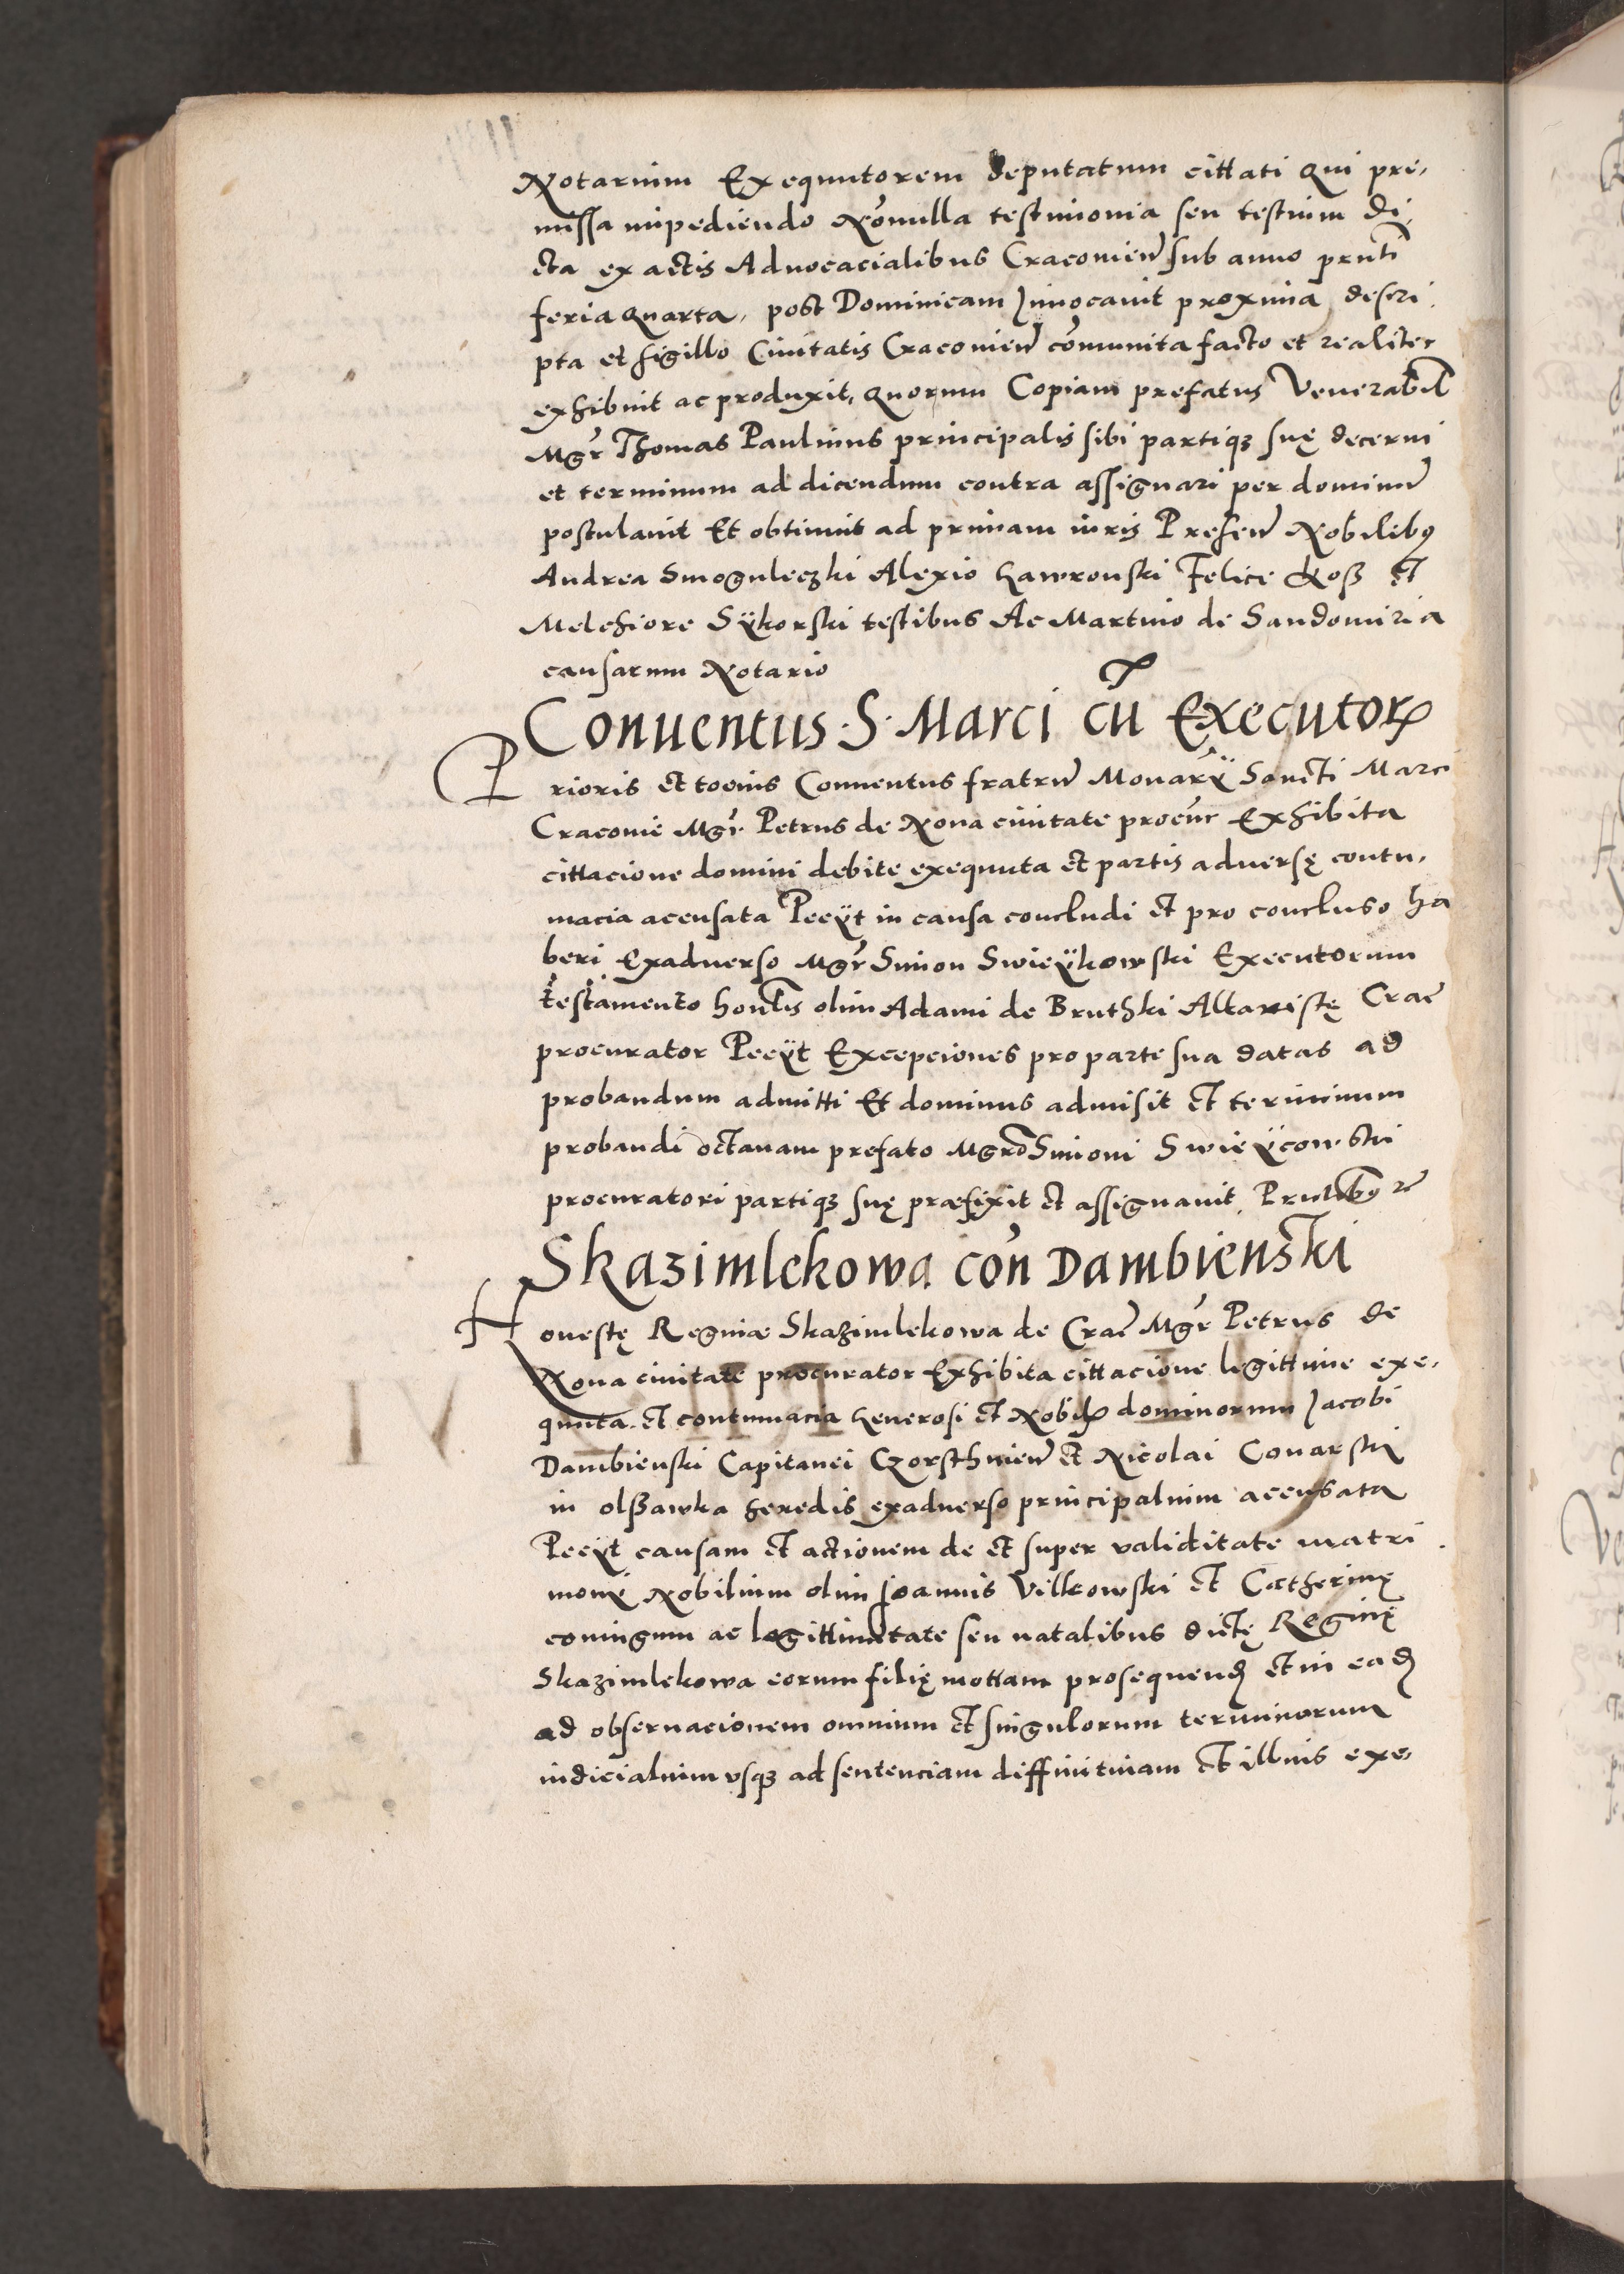 Notarium Exequutorem deputatum cittati qui pre,
missa impediendo Nōnulla testimonia seu testium di,
cta ex actis Advocacialibus Cracovień sub anno pr̄nti
feria quarta, post Dominicam Invocavit proxima, descri,
pta et sigillo Civitatis Cracovień cōmunita facto et realiter
exhibuit ac produxit, quorum Copiam prefatus Venerabil
Mgr̄ Thomas Paulinus principalis sibi partiqꝫ suę decerni
et terminum ad dicendum contra assignari per dominū
postulavit Et obtinuit ad primam iuris Preseń Nobilibꝰ
Andrea Smoguleczki Alexio Gawronski Felice Koß Et
Melchiore Sÿkorski testibus Ac Martino de Sandomiria
causarum Notario
Conventus S. Marci cū Executorꝝ
Prioris et tocius Conventus fratrū Monarÿ Sancti Marci
Cracovie Mgr̄ Petrus de Nova civitate procūr Exhibita
cittacione domini debite exequuta et partis adversę contu,
macia acusata Pecÿt in causa concludi et pro concluso ha
beri Exadverso Mgr̄ Simon Swieÿkowski Executorum
testamento honīlis olim Adami de Bruthski Altaristę Crac̄
procurator Pecÿt Excepciones pro parte sua datas ad
probandum admitti Et dominus admisit et terminum
probandi octavam prefato Mgrō Simoni Swieÿcowski
procuratori partiqꝫ suę præfixit et assignavit. Pr̄ntibꝰ ꝛc
Skazimlekowa con̄ Dambienski
Honestę Reginæ Skazimlekowa de Crac̄ Mgr̄ Petrus de
Nova civitate procurator Exhibita cittacione legittime exe,
quuta et contumacia Generosi et Nobilꝝ dominorum Jacobi
Dambienski Capitanei Czorsthnień et Nicolai Conarski
in olßawka heredis exadverso principalium accusata
Pecÿt causam et actionem de et super validitate matri,
monÿ Nobilium olim Joannis Vilkowski et Catherinę
coniugum ac legittimitate seu natalibus dictę Reginę
Skazimlekowa eorum filię mottam prosequend et in ead
ad observacionem omnium et singulorum terminorum
iudicialium usqꝫ ad sentenciam diffinitivam et illius exe,